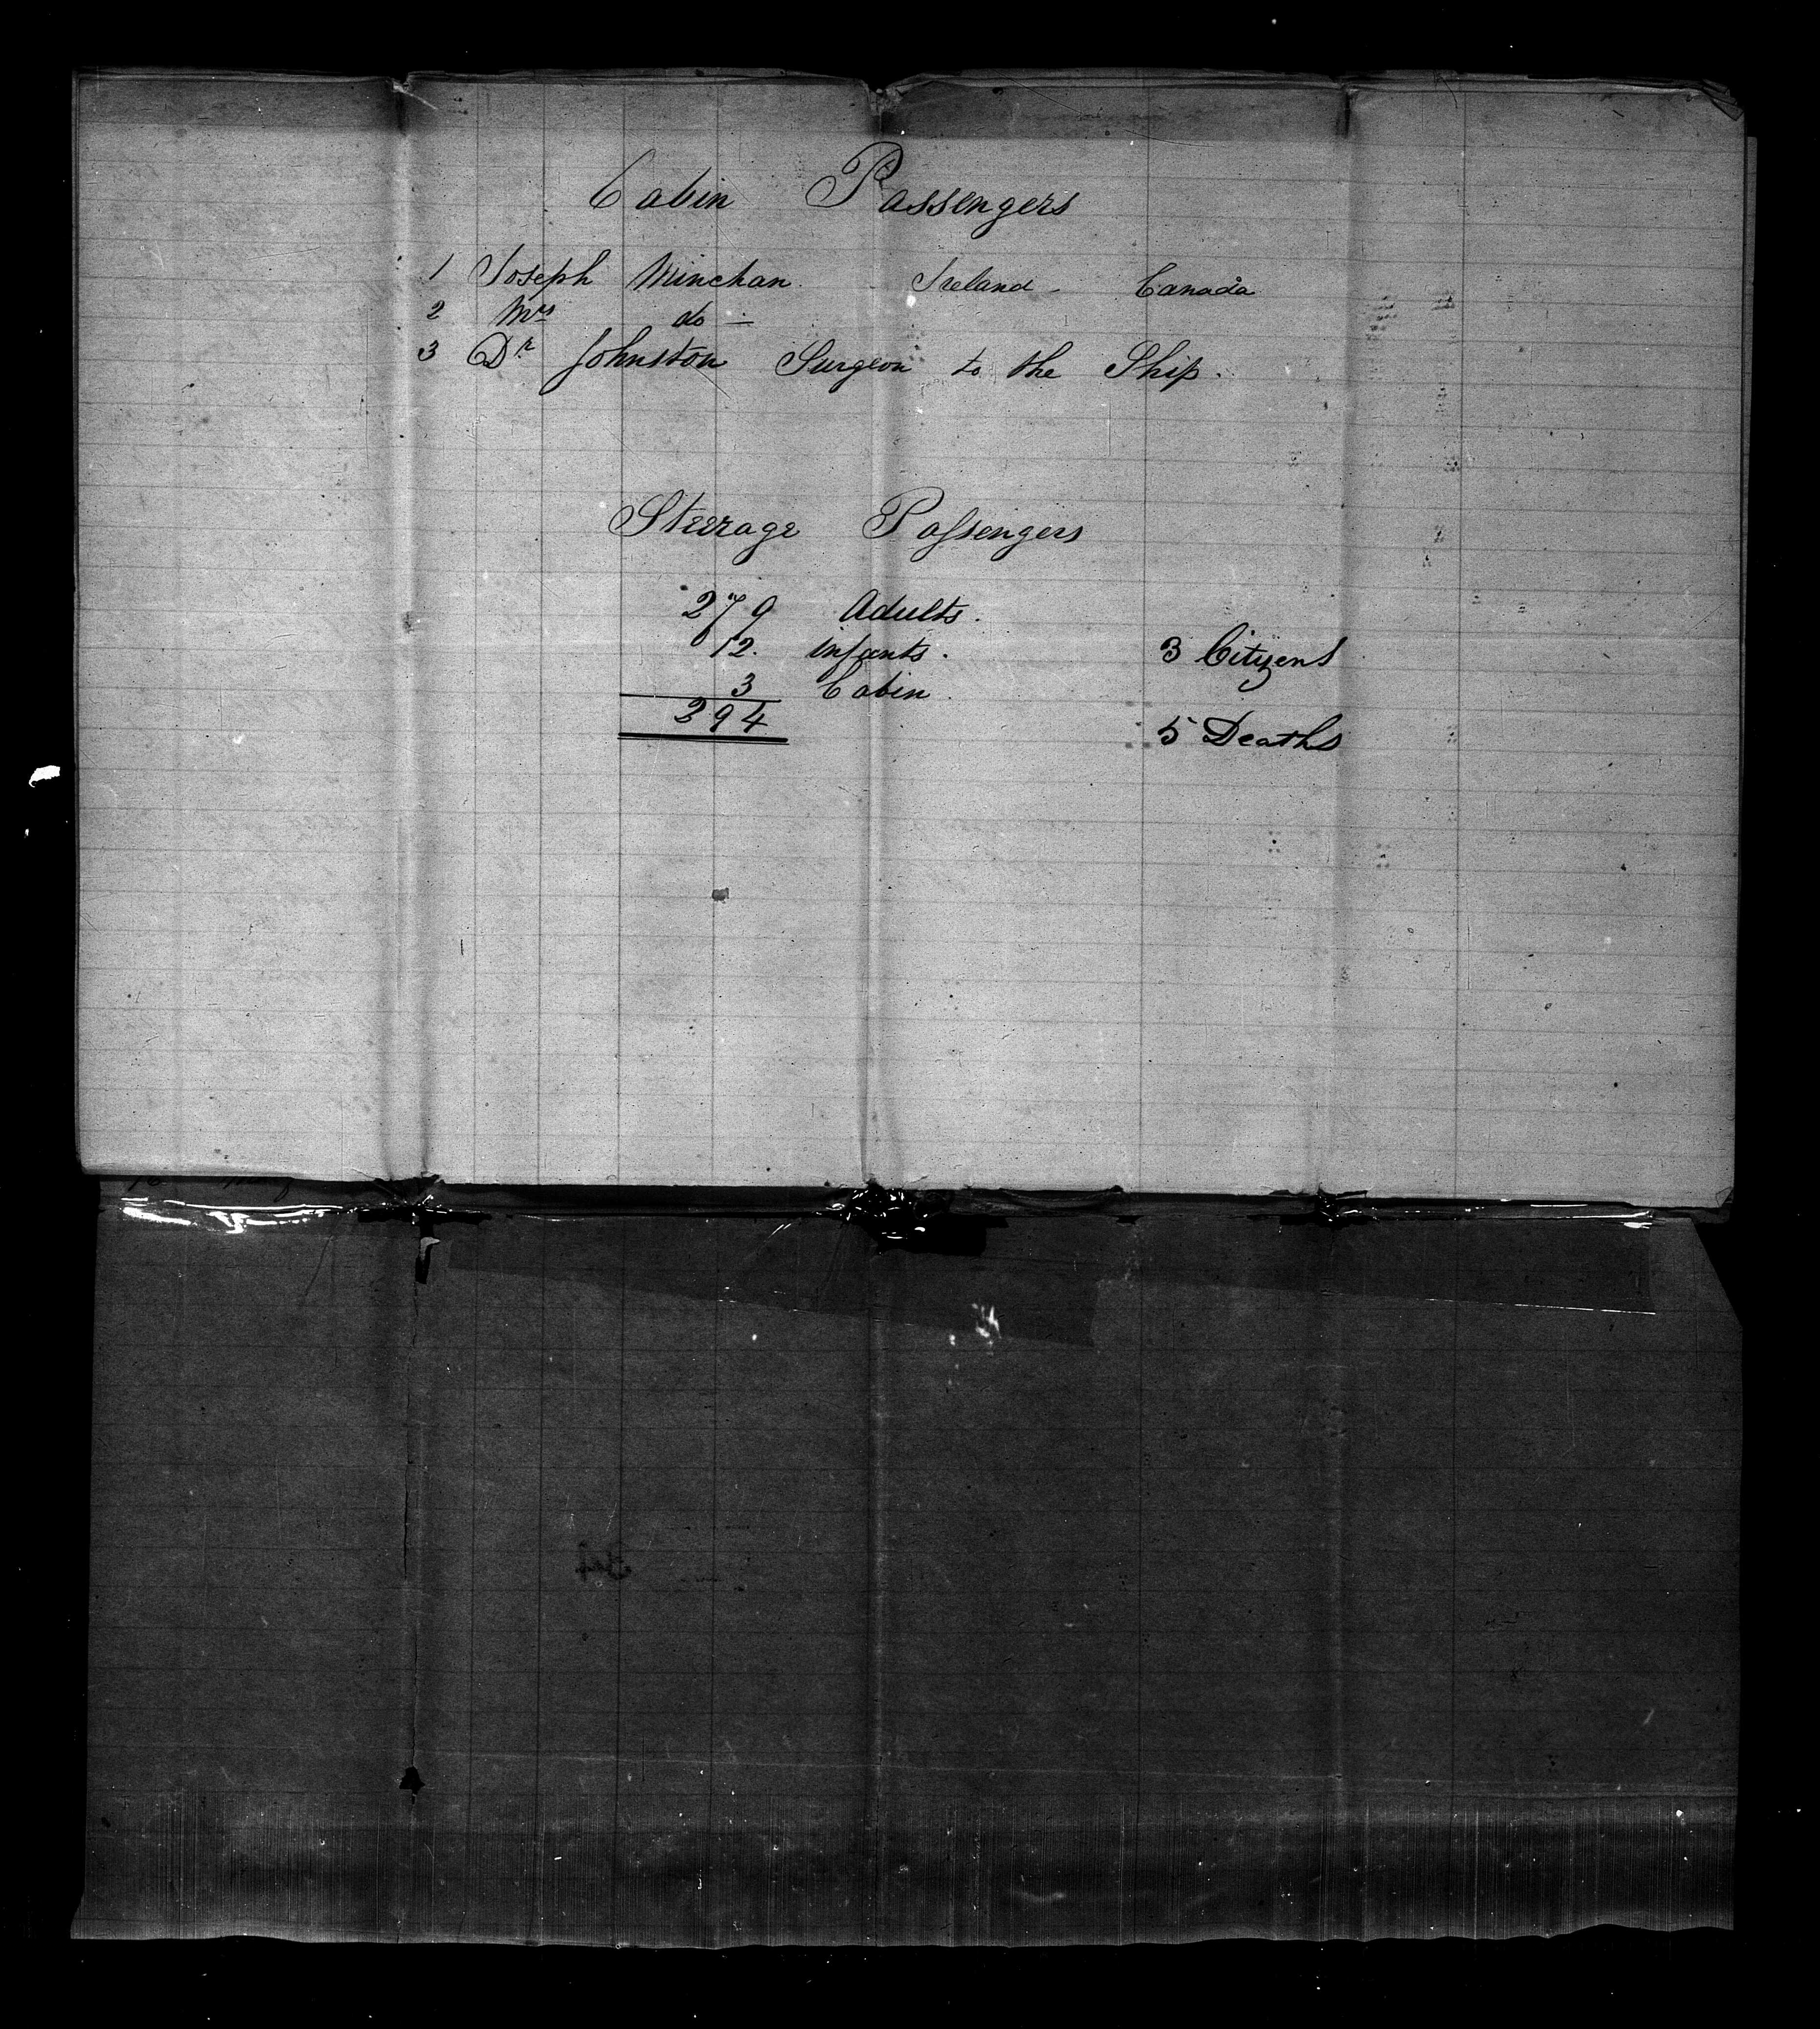 Cabin Passengers
1 Joseph Minchan. Ireland - Canada
2 Mrs do -
3 Dr Johnston Surgeon to the Ship.
Steerage Passengers
279 Adults.
12. infants. 3 Citizens
3 Cabin.
294 5 Deaths